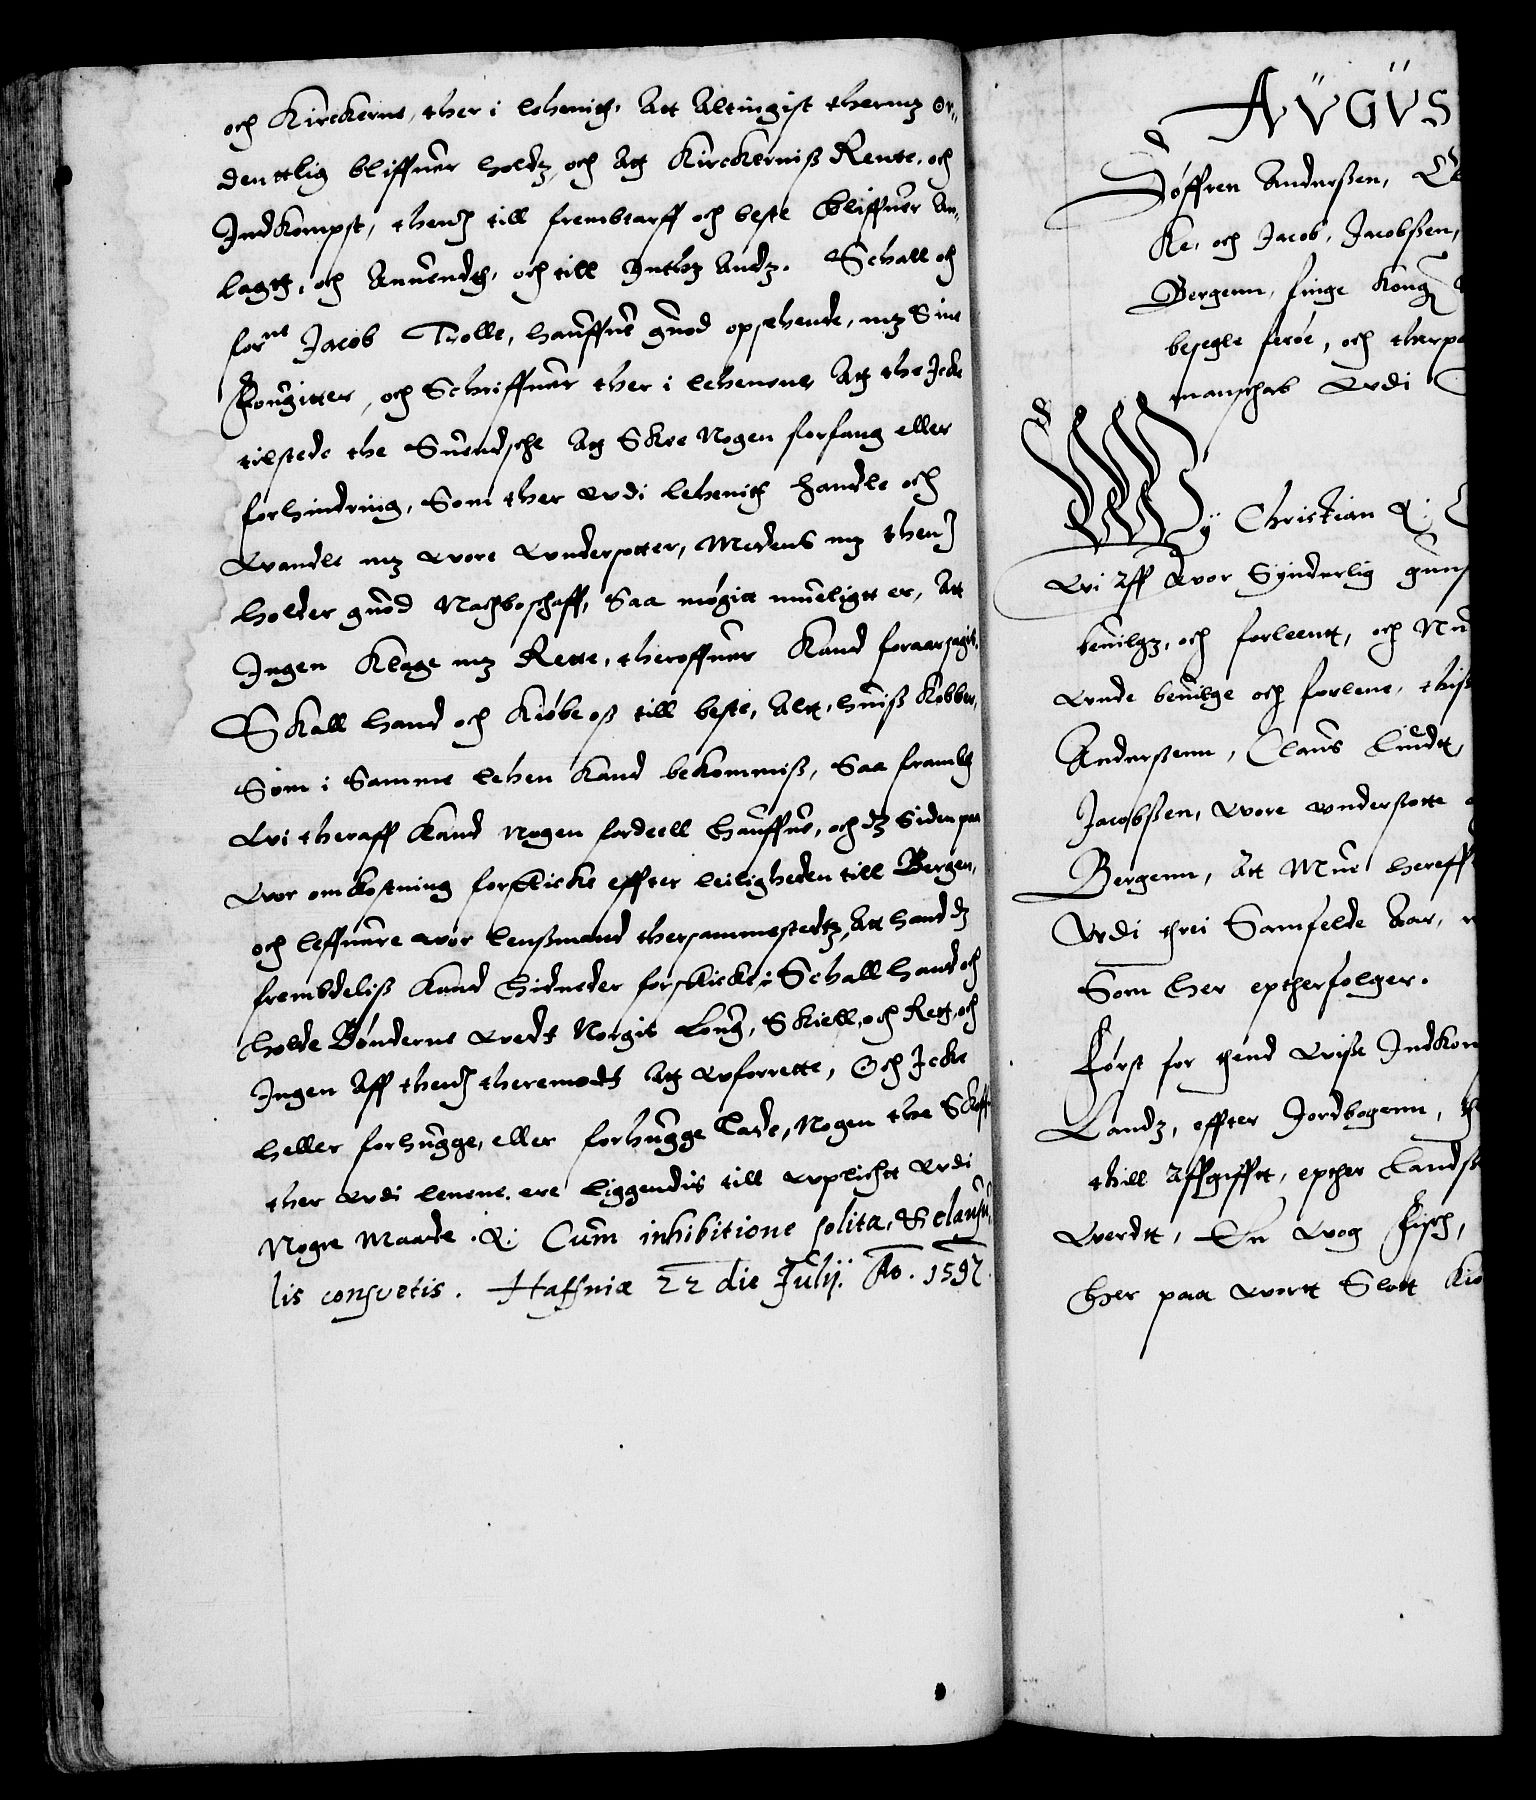 och Kirckerne, ther i lehenith, Att Altingist thermz Or„
denttlig bliffuer holdz, och Att Kirckerniß Rente, och
Indkompst, thenj till frembtarff och beste bliffuer An„
lagth, och Anuendth, och till Inthz Andz. Schall och
forne Jacob Trolle, hauffue guod opsehende, mz Sine
Fougitter, och Schriffuer ther i lehenene Att the Icke
tilstede the Suendsche Att Skee Nogen forfang eller
forhindring, Som ther wdi lehenith handle och
Wandle mz wore Wndersotter, Medens mz thenj
holder guod Nachboschaff, Saa mögitt mueligtt er, Att
Ingen Klage mz Rette, theroffuer Kand foraarsagis.
Skall hand och Kiöbe oß till beste, Altt, huiß Kobber,
Som i Samme lehen Kand bekommiß, Saa framtt
Wi theraff Kand Nogen fordeell hauffue, och dz Siden paa
Wor omkostning forskicke effter leiligheden till Bergen,
och leffuere wor lenßmand thersammestedtz, Att hand dz
frembdeliß Kand hidneder forskicke: Schall hand och
holde Bönderne wedt Norgis Loug, Skiell, och Rett, och
Ingen Aff thenj theremodt Att Wforrette, Och Icke
heller forhugge, eller forhugge Lade, Nogen the Skoffue
ther wdi lenene ere liggendis till wplichtt wdi
Nogre Maade. &: Cum inhibitione solita, & clausu„
lis consuetis. Haffniæ 22 die Julij. Ao. 1597.
AVGVS
Söffren Anderßen, Cl
Ke, och Jacob Jacobßen,
Bergenn, finge Kong:
besegle feröe, och therpaa
manschab wdi
Wy Christian &:
Wi Aff Wor Synderlig guns
beuilgz, och forleentt, och Nu
Wnde beuilge och forlene, thiß
Anderßenn, Claus Lüdtt,
Jacobßen, Wore wndersotte
Bergenn, Att Mue hereffter
Wdi threi Samfelde Aar,
Som her eptherfolger.
Först for thend Wisse Indkom
Landz, effter Jordbogenn, th
thill Affgifftt, epther Landß
Werdtt, En wog Fisch,
her paa wortt Slott Kiö